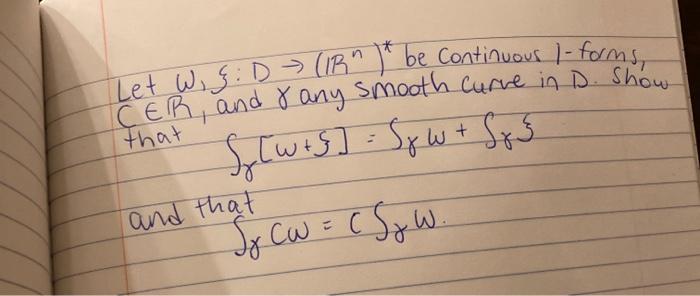 Let ω, ξ: D → (ℝⁿ)* be continuous 1-forms,
C ∈ ℝ, and γ any smooth curve in D. Show
that
∫γ [ω+ξ] = ∫γ ω + ∫γ ξ
and that
∫γ Cω = C ∫γ ω.